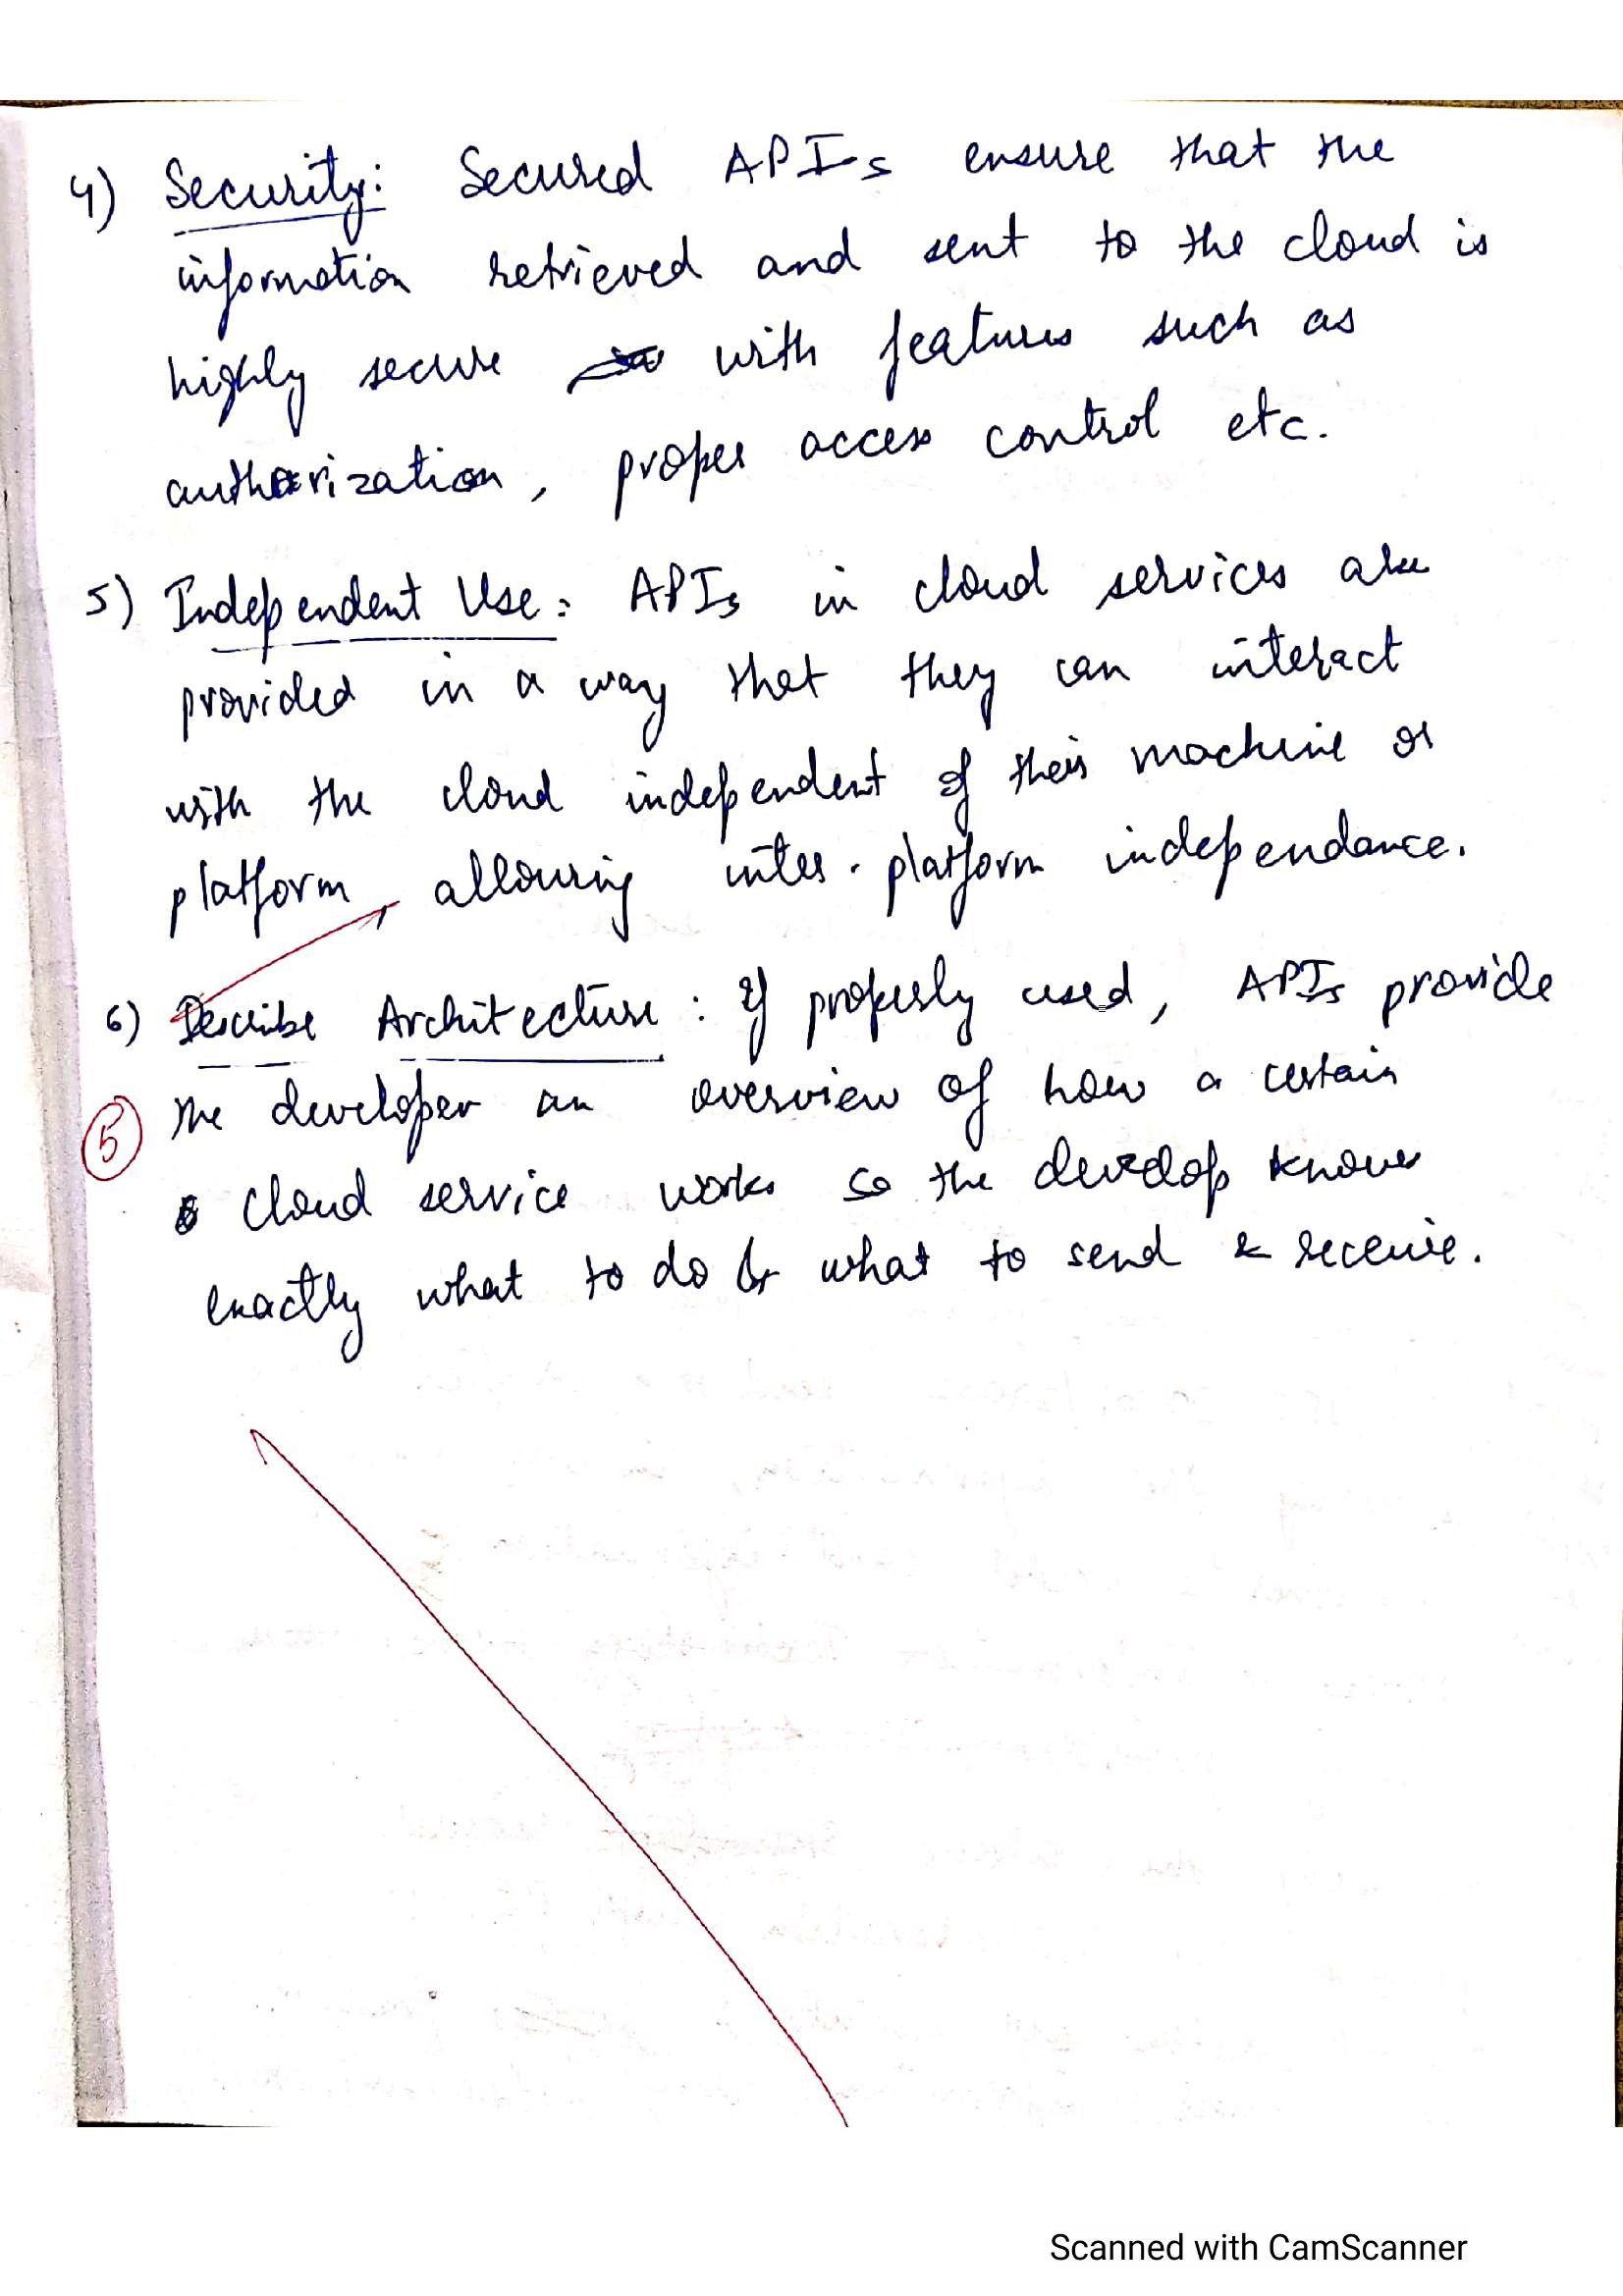 4) Security: Secured APIs ensure that the
information retrieved and sent to the cloud is
highly secure with features such as
authorization, proper access control etc.
5) Independent Use: APIs in cloud services are
provided in a way that they can interact
with the cloud independent of their machine or
platform, allowing inter-platform independance.
6) Describe Architecture: If properly used, APIs provide
5
the developer an overview of how a certain
cloud service works so the develop knows
exactly what to do & what to send & receive.
Scanned with CamScanner